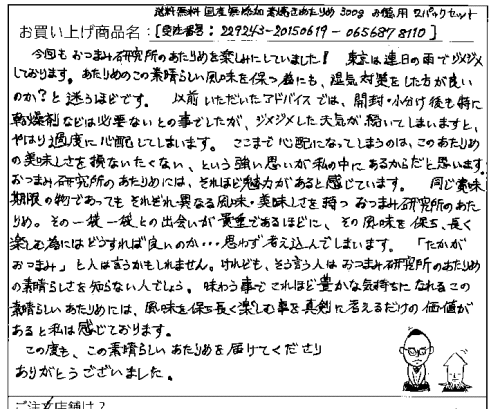 送料無料 国産無添加 素焼きあたりめ 300g お徳用 2パックセット
お買い上げ商品名：[受注番号：227243-20150619-0656878110]
今回もおつまみ研究所のあたりめを楽しみにしていました！ 東京は連日の雨でジメジメ
しております。あたりめのこの素晴らしい風味を保つ為にも、湿気対策をした方が良い
のか？と迷うほどです。 以前いただいたアドバイスでは、開封・小分け後も特に
乾燥剤などは必要ないとの事でしたが、ジメジメした天気が続いてしまいますと、
やはり過度に心配してしまいます。 ここまで心配になってしまうのは、このあたりめ
の美味しさを損ないたくない、という強い思いが私の中にあるからだと思います。
おつまみ研究所のあたりめには、それほど魅力があると感じています。 同じ賞味
期限の物であってもそれぞれ異なる風味・美味しさを持つおつまみ研究所のあたり
め。その一袋一袋との出会いが貴重であるほどに、その風味を保ち、長く
楽しむ為にはどうすれば良いのか…思わず考え込んでしまいます。「たかが
おつまみ」と人は言うかもしれません。けれども、そう言う人はおつまみ研究所のあたりめ
の素晴らしさを知らない人でしょう。味わう事でこれほど豊かな気持ちになれるこの
素晴らしいあたりめには、風味を保ち長く楽しむ事を真剣に考えるだけの価値が
あると私は感じております。
この度も、この素晴らしいあたりめを届けてくださり
ありがとうございました。
ご注文店舗は？